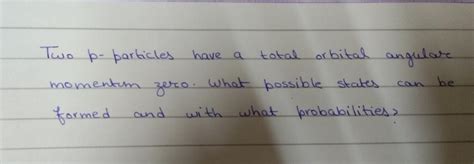 Two p- particles have a total orbital angular
momentum zero. What possible states can be
formed and with what probabilities?